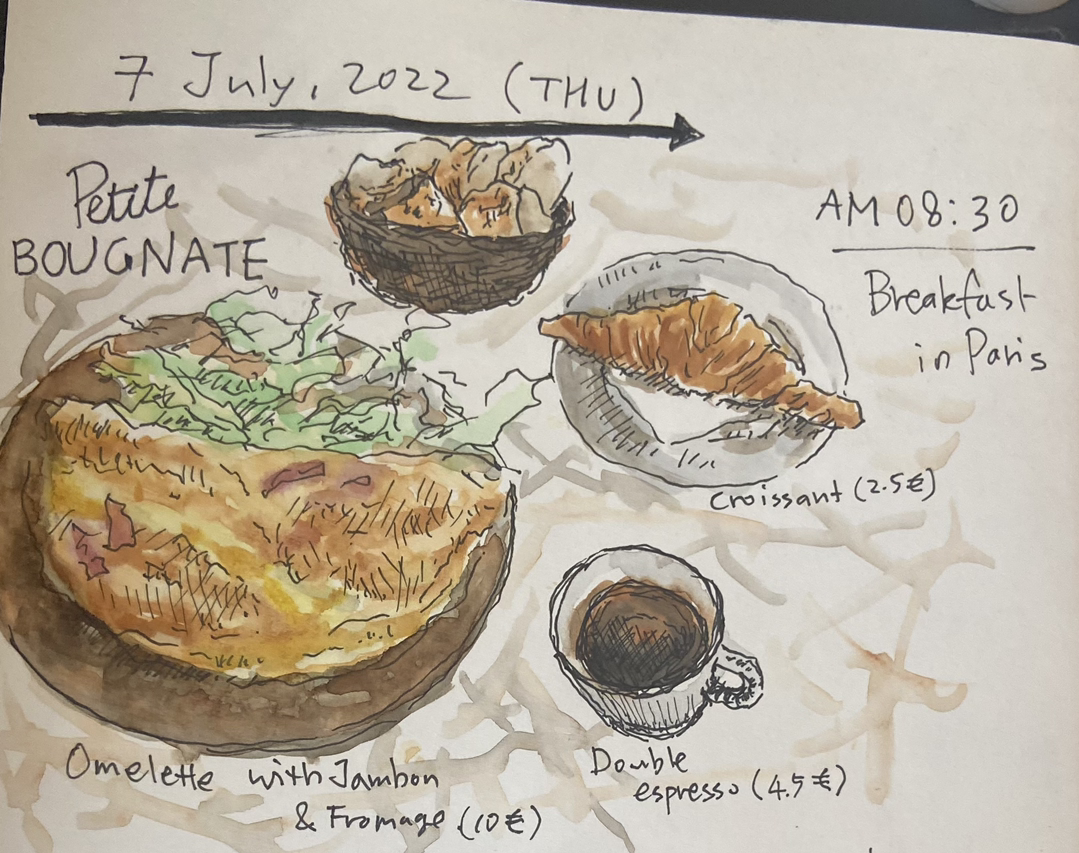 7 July, 2022 (THU)
Petite
BOUGNATE
AM 08:30
Breakfast
in Paris
Croissant (2.5€)
Double
espresso (4.5€)
Omelette with Jambon
& Fromage (10€)